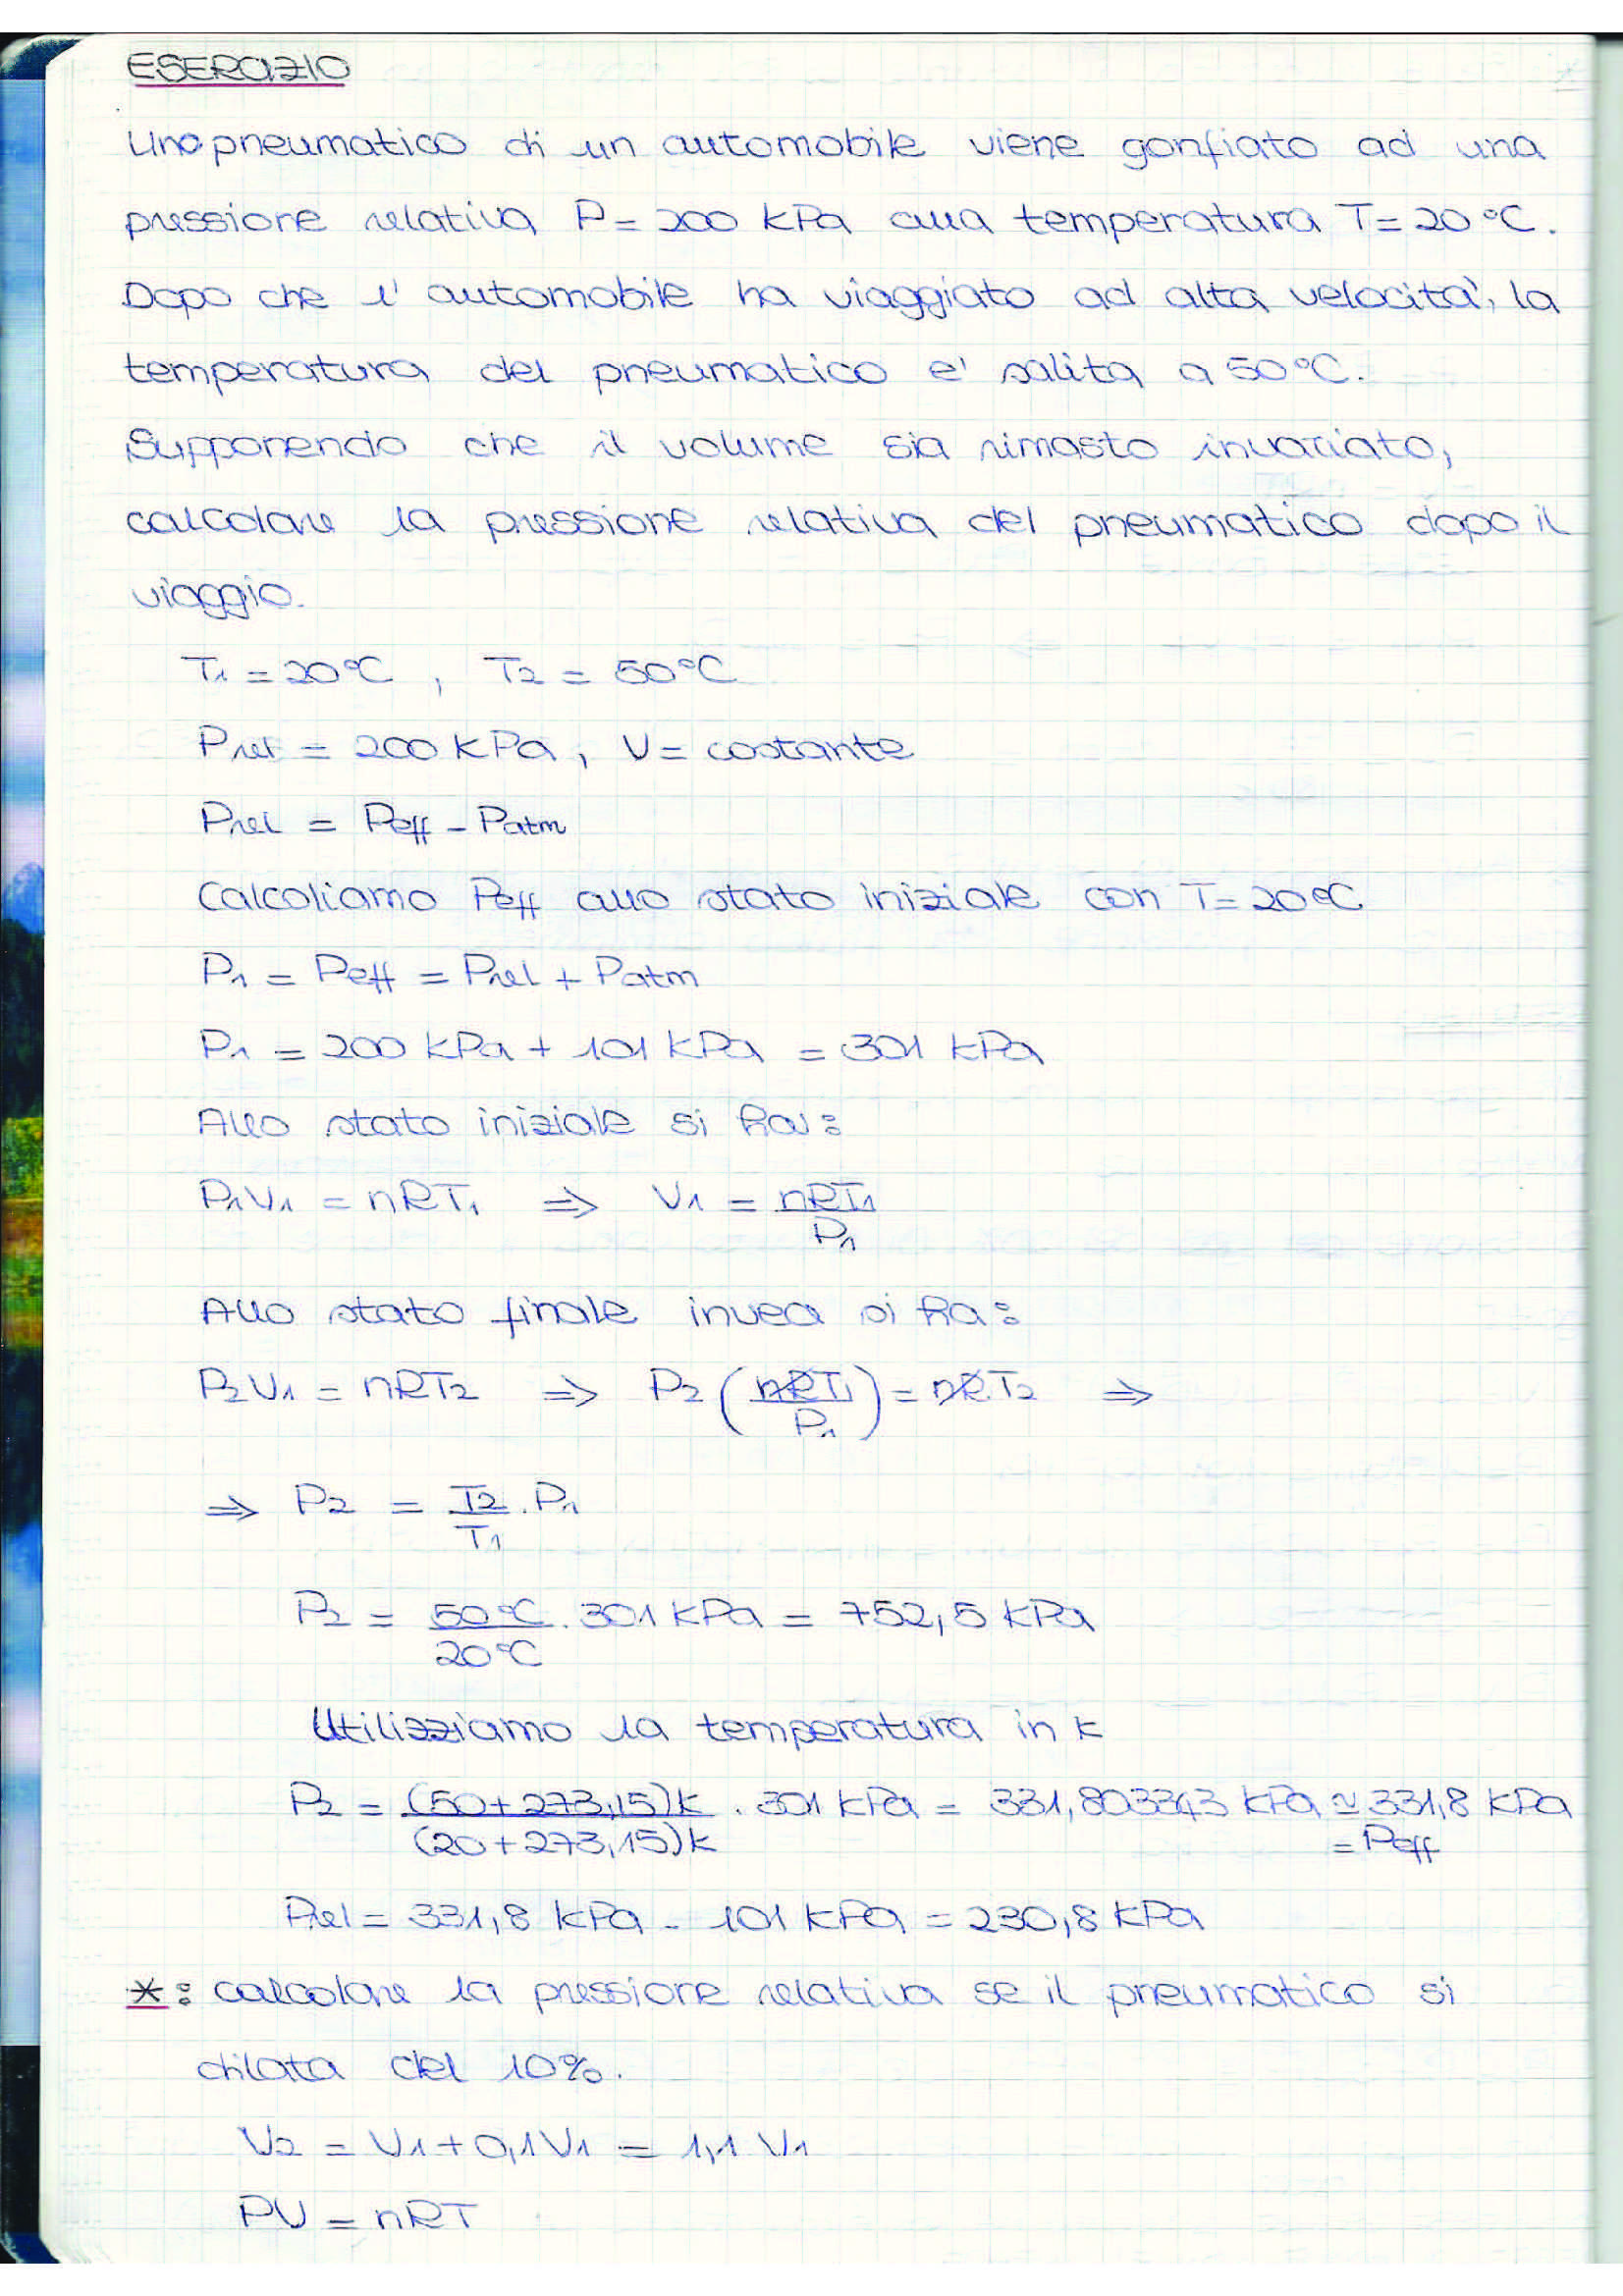 ESERCIZIO
Uno pneumatico di un automobile viene gonfiato ad una
pressione relativa P = 200 KPa alla temperatura T = 20 °C.
Dopo che l' automobile ha viaggiato ad alta velocita', la
temperatura del pneumatico e' salita a 50 °C.
Supponendo che il volume sia rimasto invariato,
calcolare la pressione relativa del pneumatico dopo il
viaggio.
T1 = 20 °C , T2 = 50 °C
Prel = 200 KPa , V = costante
Prel = Peff - Patm
Calcoliamo Peff allo stato iniziale con T = 20 °C
P1 = Peff = Prel + Patm
P1 = 200 KPa + 101 KPa = 301 KPa
Allo stato iniziale si ha:
P1V1 = nRT1 ⇒ V1 = nRT1/P1
Allo stato finale invece si ha:
P2V1 = nRT2 ⇒ P2 (nRT1/P1) = nRT2 ⇒
⇒ P2 = T2/T1 . P1
P2 = 50 °C/20 °C . 301 KPa = 752,5 KPa
Utilizziamo la temperatura in K
P2 = (50+273,15)K/(20+273,15)K . 301 KPa = 331,803343 KPa ≃ 331,8 KPa
= Peff
Prel = 331,8 KPa - 101 KPa = 230,8 KPa
*: calcolare la pressione relativa se il pneumatico si
dilata del 10%.
V2 = V1 + 0,1V1 = 1,1 V1
PV = nRT